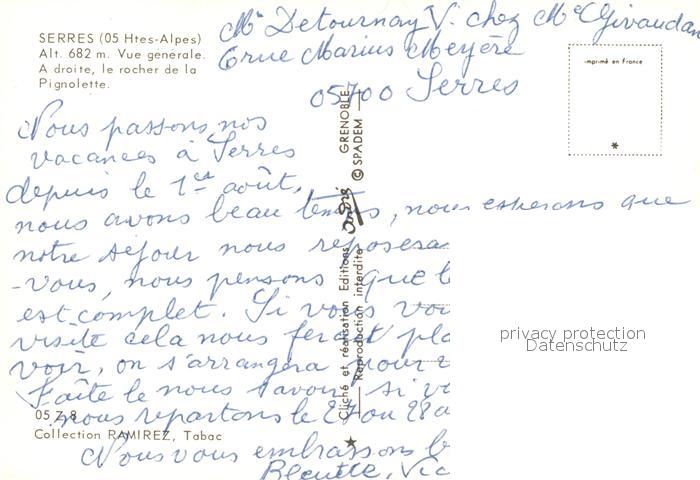 SERRES (05 Htes-Alpes)
Alt. 682 m. Vue générale.
A droite, le rocher de la
Pignolette.
Mr Detournay V. chez Me Givaudan
6 rue Marius Meyère
05700 Serres
imprimé en France
*
Nous passons nos
vacances à Serres
depuis le 1er août,
nous avons beau temps, nous esperons que
notre séjour nous reposera
-vous, nous pensons que l
est complet. Si vous vou
visite cela nous ferait pla
voir, on s'arrangera pour
Faite le nous savoir si vo
nous repartons le 27 ou 28 a
Nous vous embrassons b
Cliché et réalisation Editions André GRENOBLE
Reproduction interdite © SPADEM
05 Z 8
Collection RAMIREZ, Tabac
privacy protection
Datenschutz